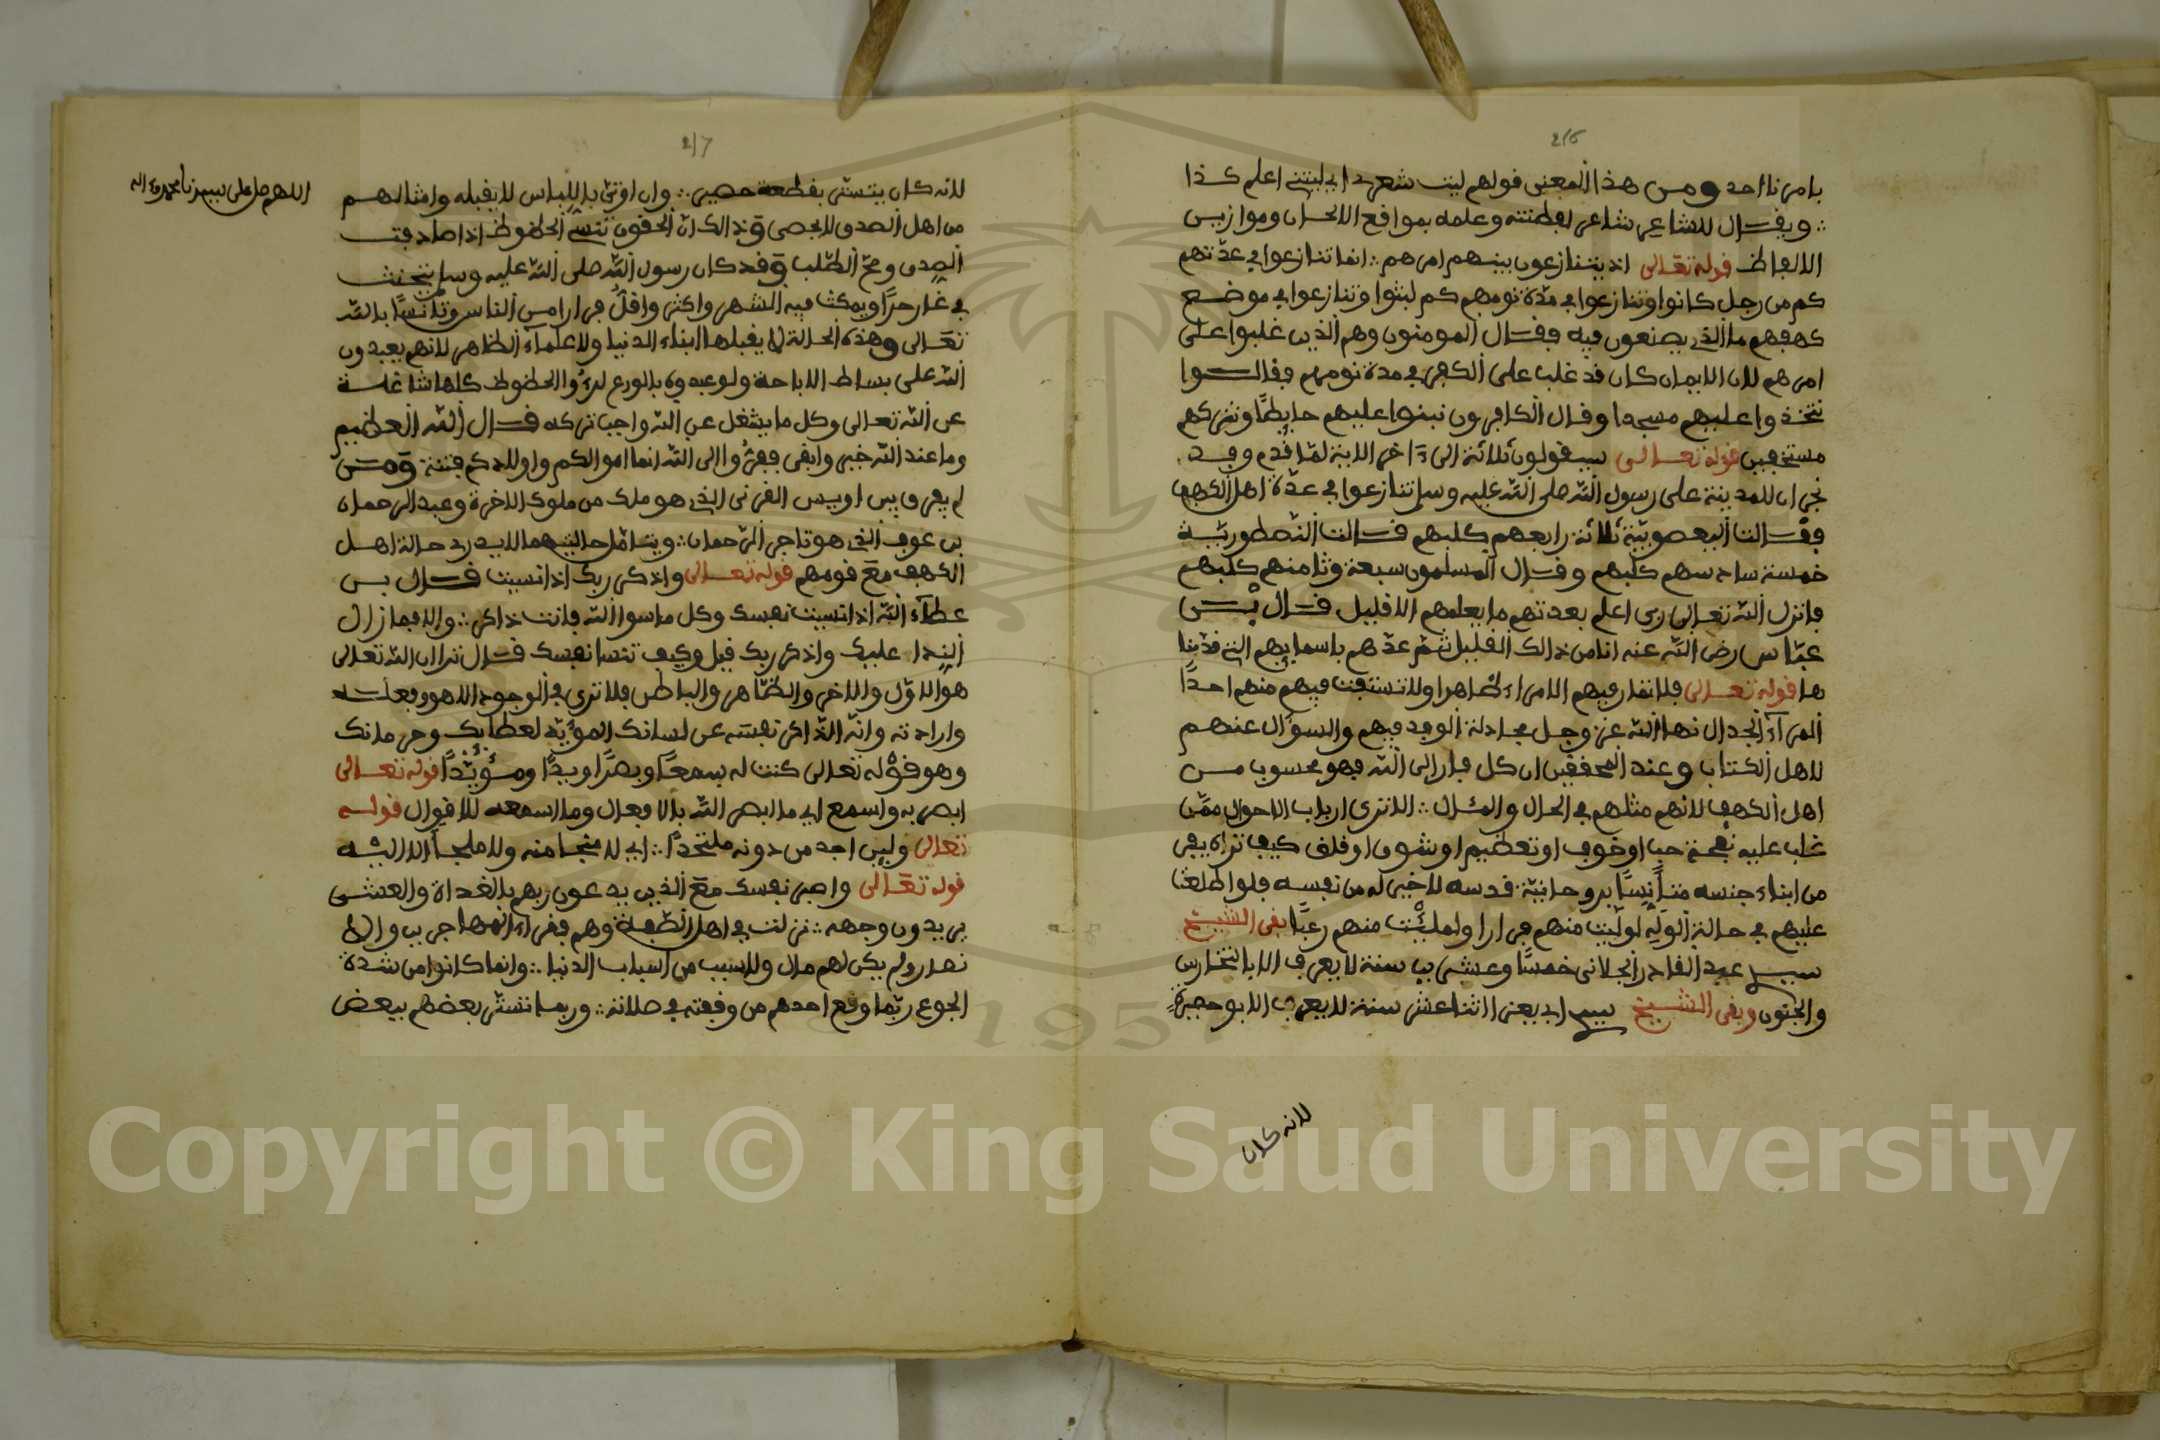 216
بامرنا احد ومن هذا المعنى قولهم ليت شعرى اى ليتنى اعلم كذا
؞ ويقال للشاعر شاعر لفطنته وعلمه بمواقع الالحان وموازين
الالفاظ قوله تعالى اذ يتنازعون بينهم امرهم ؞ انما تنازعوا فى عدّتهم
كم من رجل كانوا وتنازعوا فى مدّة نومهم كم لبثوا وتنازعوا فى موضع
كهفهم ما الذى يصنعون فيه فقال المومنون وهم الذين غلبوا على
امرهم لان الايمان كان قد غلب على الكفر فى مدة نومهم فقالوا
نتخذوا عليهم مسجدا وقال الكافرون نبنوا عليهم حايطًا ونتركهم
مستخفين قوله تعالى سيقولون ثلاثة الى ءاخر الاية لمّا قدم وفد
نجران للمدينة على رسول اللّه صلى اللّه عليه وسلم تنازعوا فى عدّة اهل الكهف
فقالت اليعقوبيّة ثلاثة رابعهم كلبهم قالت النّصطوريّة
خمسة سادسهم كلبهم وقال المسلمون سبعة وثامنهم كلبهم
فانزل اللّه تعالى ربى اعلم بعدتهم ما يعلمهم الا قليل قال بن
عبّاس رضى اللّه عنه انا من ذالك القليل ثم عدّهم باسمايهم التى قدّمنا
ها قوله تعالى فلا تمار فيهم الا مراء ظاهرا ولا تستفت فيهم منهم احدًا
المرآء الجدال نها اللّه عز وجل مجادلة الوفد فيهم والسؤال عنهم
لاهل الكتاب وعند المحققين ان كل فار الى اللّه فهو محسوب من
اهل الكهف لانهم مثلهم فى الحال والمئال ؞ الا ترى ارباب الاحوال ممّن
غلب عليه نفحة حب او خوف او تعظيم او شوق او قلق كيف تراه يفر
من ابناء جنسه متأنسًا بروحانيّة قدسه لاخبر له من نفسه فلو اطلعت
عليهم فى حالة الوله لولّيت منهم فرارا ولملئت منهم رعبًا بقى الشيخ
سيدى عبد القادر الجلانى خمسًا وعشرين سنة لا يعرف الا بالتخارس
والجنون وبقى الشيخ سيدى ابى يعزى اثنا عشر سنة لا يعرف الا بو حصيرةٍ
لانه كان
217
اللهم صل على سيدنا محمد وءاله
لانه كان يتستّر بقطعة حصير ؞ وان اوتى باللباس لا يقبله وامثالهم
من اهل الصدق لا يحصى وذالك ان الحقوق تنسى الحظوظ اذا صادفت
الصدق ومحّ الطّلب وقد كان رسول اللّه صلى اللّه عليه وسلم يتحنث
فى غار حرًا ويمكث فيه الشهر واكثر واقلّ فرارا من الناس وتانسًا باللّه
تعالى وهذه الحالة لا يقبلها ابناء الدنيا ولا علماء الظاهر لانهم يعبدون
اللّه على بساط الاباحة ولو عبدوه بالورع لرءوا الحظوظ كلها شاغلة
عن اللّه تعالى وكل ما يشغل عن اللّه واجب تركه قال اللّه العظيم
وما عند اللّه خير وابقى ففرّوا الى اللّه انما اموالكم واولادكم فتنة ومن
لم يفرق بين اويس القرنى الذى هو ملك من ملوك الاخرة وعبد الرحمان
بن عوف الذى هو تاجر الرّحمان ؞ ويتامّل حالتيهما لا يدرى حالة اهل
الكهف مع قومهم قوله تعالى واذكر ربك اذا نسيت قال بن
عطآء اللّه اذا نسيت نفسك وكل ما سوا اللّه فانت ذاكر ؞ والا فما زال
الندا عليك واذكر ربك قيل وكيف تنسا نفسك قال ترا ان اللّه تعالى
هو الاوّل والاخر والظّاهر والباطن فلا ترى فى الوجود الا هو وفعله
وارادته وانّه الذّاكر نفسه عن لسانك المؤيّد لعطايك وحرمانك
وهو قوله تعالى كنت له سمعًا وبصرًا ويدًا ومؤيّدًا قوله تعالى
ابصر به واسمع اى ما ابصر اللّه بالافعال وما اسمعه للاقوال قوله
تعالى ولن اجد من دونه ملتحدًا ؞ اى لا منجا منه ولا ملجأ الا اليه
قوله تعالى واصبر نفسك مع الذين يدعون ربهم بالغداة والعشى
يريدون وجهه ؞ نزلت فى اهل الصّفة وهم فقراء المهاجرين والا
نصار ولم يكن لهم مال ولا سبب من اسباب الدنيا ؞ وانما كانوا من شدة
الجوع ربّما وقع احدهم من وقفته فى صلاته ؞ وربما تستّر بعضهم ببعض
Copyright © King Saud University
1957